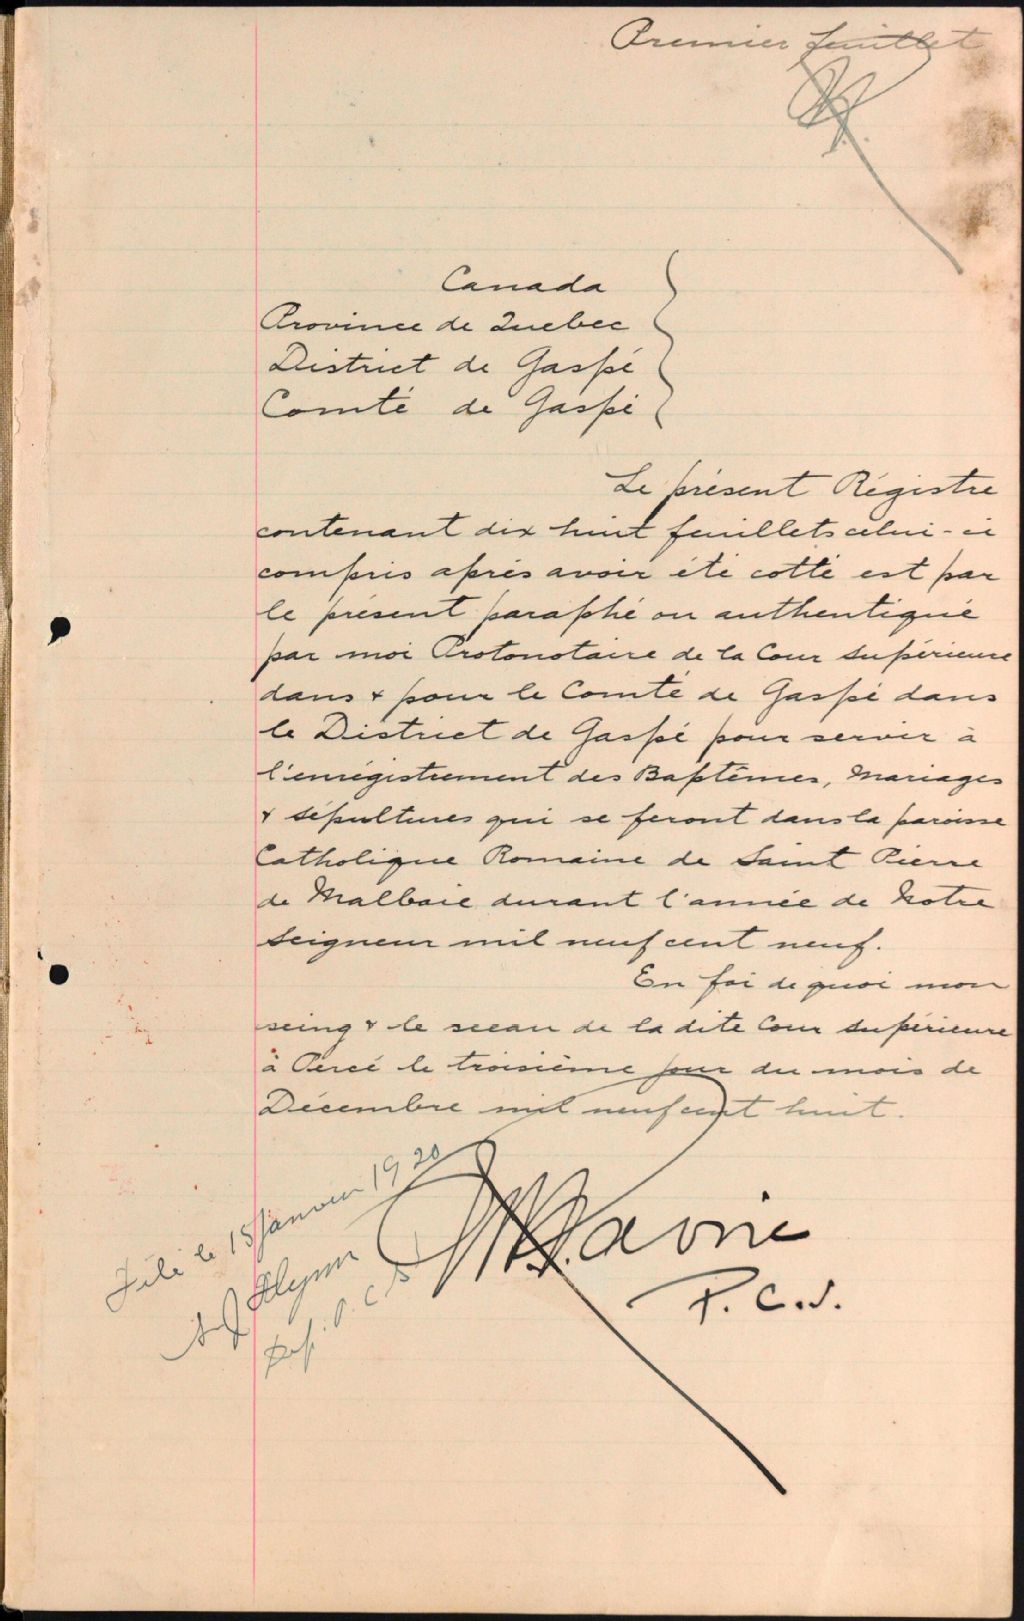 Premier feuillet
Canada
Province de Quebec
District de Gaspé
Comté de Gaspé
Le présent Régistre
contenant dix huit feuillets celui-ci
compris après avoir été cotté est par
le présent paraphé ou authentiqué
par moi Protonotaire de la Cour Supérieure
dans & pour le Comté de Gaspé dans
le District de Gaspé pour servir à
l'enrégistrement des Baptêmes, Mariages
& Sépultures qui se feront dans la paroisse
Catholique Romaine de Saint Pierre
de Malbaie durant l'année de Notre
Seigneur mil neuf cent neuf.
En foi de quoi mon
seing & le sceau de la dite Cour Supérieure
à Percé le troisième jour du mois de
Décembre mil neuf cent huit.
Savoie
P.C.S.
Filé le 15 Janvier 1920
Flynn
Dep. P.C.S